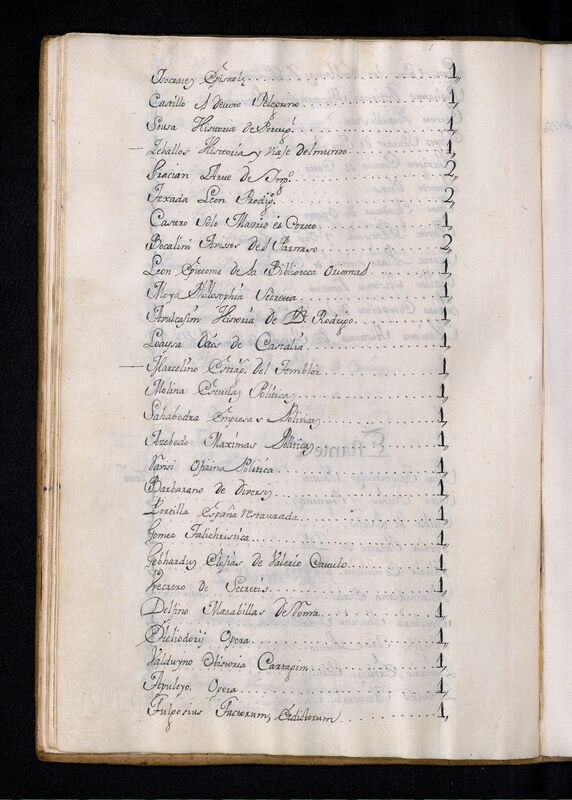 Isocrates Epistolę ..... 1,
Castillo Adevoto Pelegrino ..... 1,
Sousa Historia de Portugˡ. ..... 1,
Zeballos Historia, y Viaje del mundo ..... 1,
Gracian Arte de Ingº. ..... 2,
Texada Leon Prodigº. ..... 2,
Castro Solo Madrid es Corte ..... 1,
Bocalini Avissos del Parnaso ..... 2,
Leon Epitome de la Biblioteca Oriental ..... 1,
Moya Philosophia Secreta ..... 1,
Abulcasim Historia de D. Rodrigo ..... 1,
Loayssa de Castalia ..... 1,
Marcelino del Temblor ..... 1,
Molina Escuelas Politicas ..... 1,
Sahabedra Empresas Politicas ..... 1,
Azebedo Maximas Politicas ..... 1,
Narsi Oficina Politica ..... 1,
Barbarano de Diversis ..... 1,
Portilla España restaurada ..... 1,
Gomez ..... 1,
Gebhardus de Valerio ..... 1,
Vecrero de Secretis ..... 1,
Delfino Marabillas de Roma ..... 1,
Heliodorij Opera ..... 1,
Valduyno Historia Cartagin ..... 1,
Apuleyo, Opera ..... 1,
Fulgosius Factorum, & dictorum ..... 1,